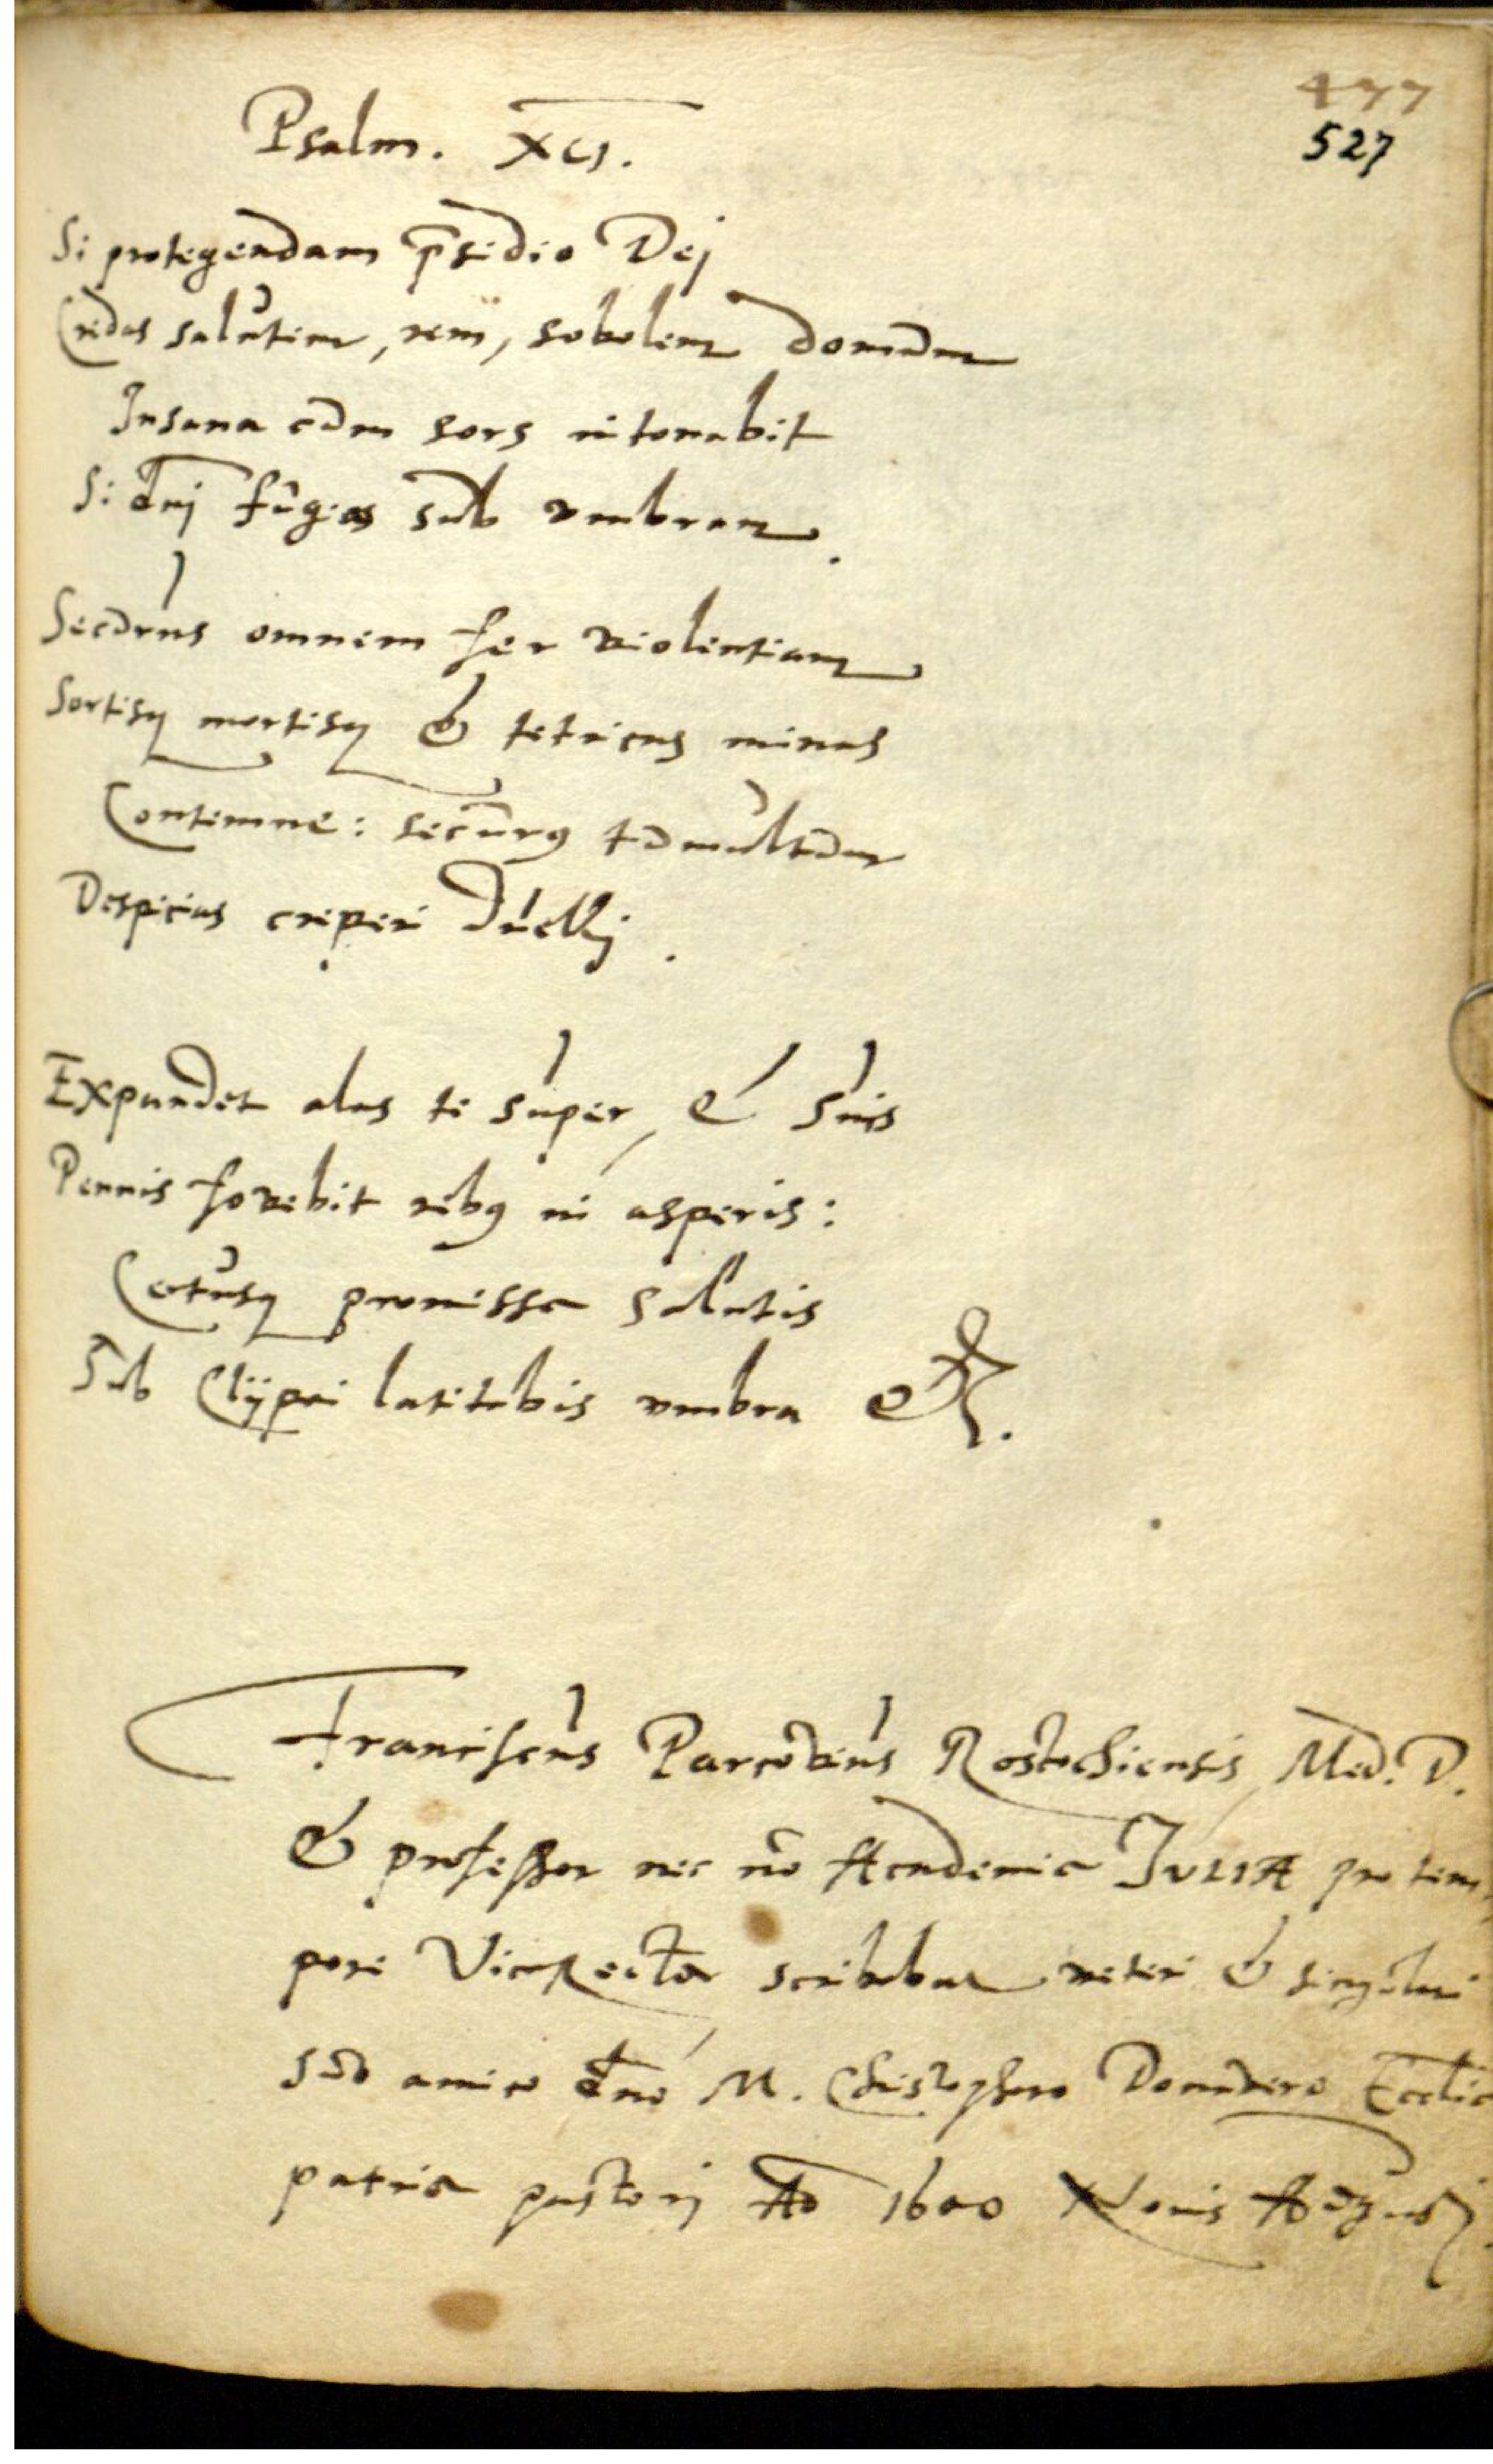 477
527
Psalm. XCI.
Si protegendam p̄sidio Dej
Credas salutem, rem, sobolem domum
Insana cum sors intonabit
Si dn̄j fugias sub umbram.
Securus omnem fer violentiam
Sortisq mortisq & tetricas minas
Contemne: securus tumultum
Despicias creperi duellj.
Expandet alas te super, & suis
Pennis fovebit rebus in asperis:
Certusq promissa salutis
Sub Clÿpei latitabis umbra &c.
Franciscus Parcovius Rostochiensis, Med. D.
& professor nec nō Academiæ JULIÆ pro tem,
pore ViceRector scribebam veteri & singulari
suo amico dn̄o M. Christophoro Donnvero Eccliæ
patriæ pastorj Ao 1600 Nonis Augustj.